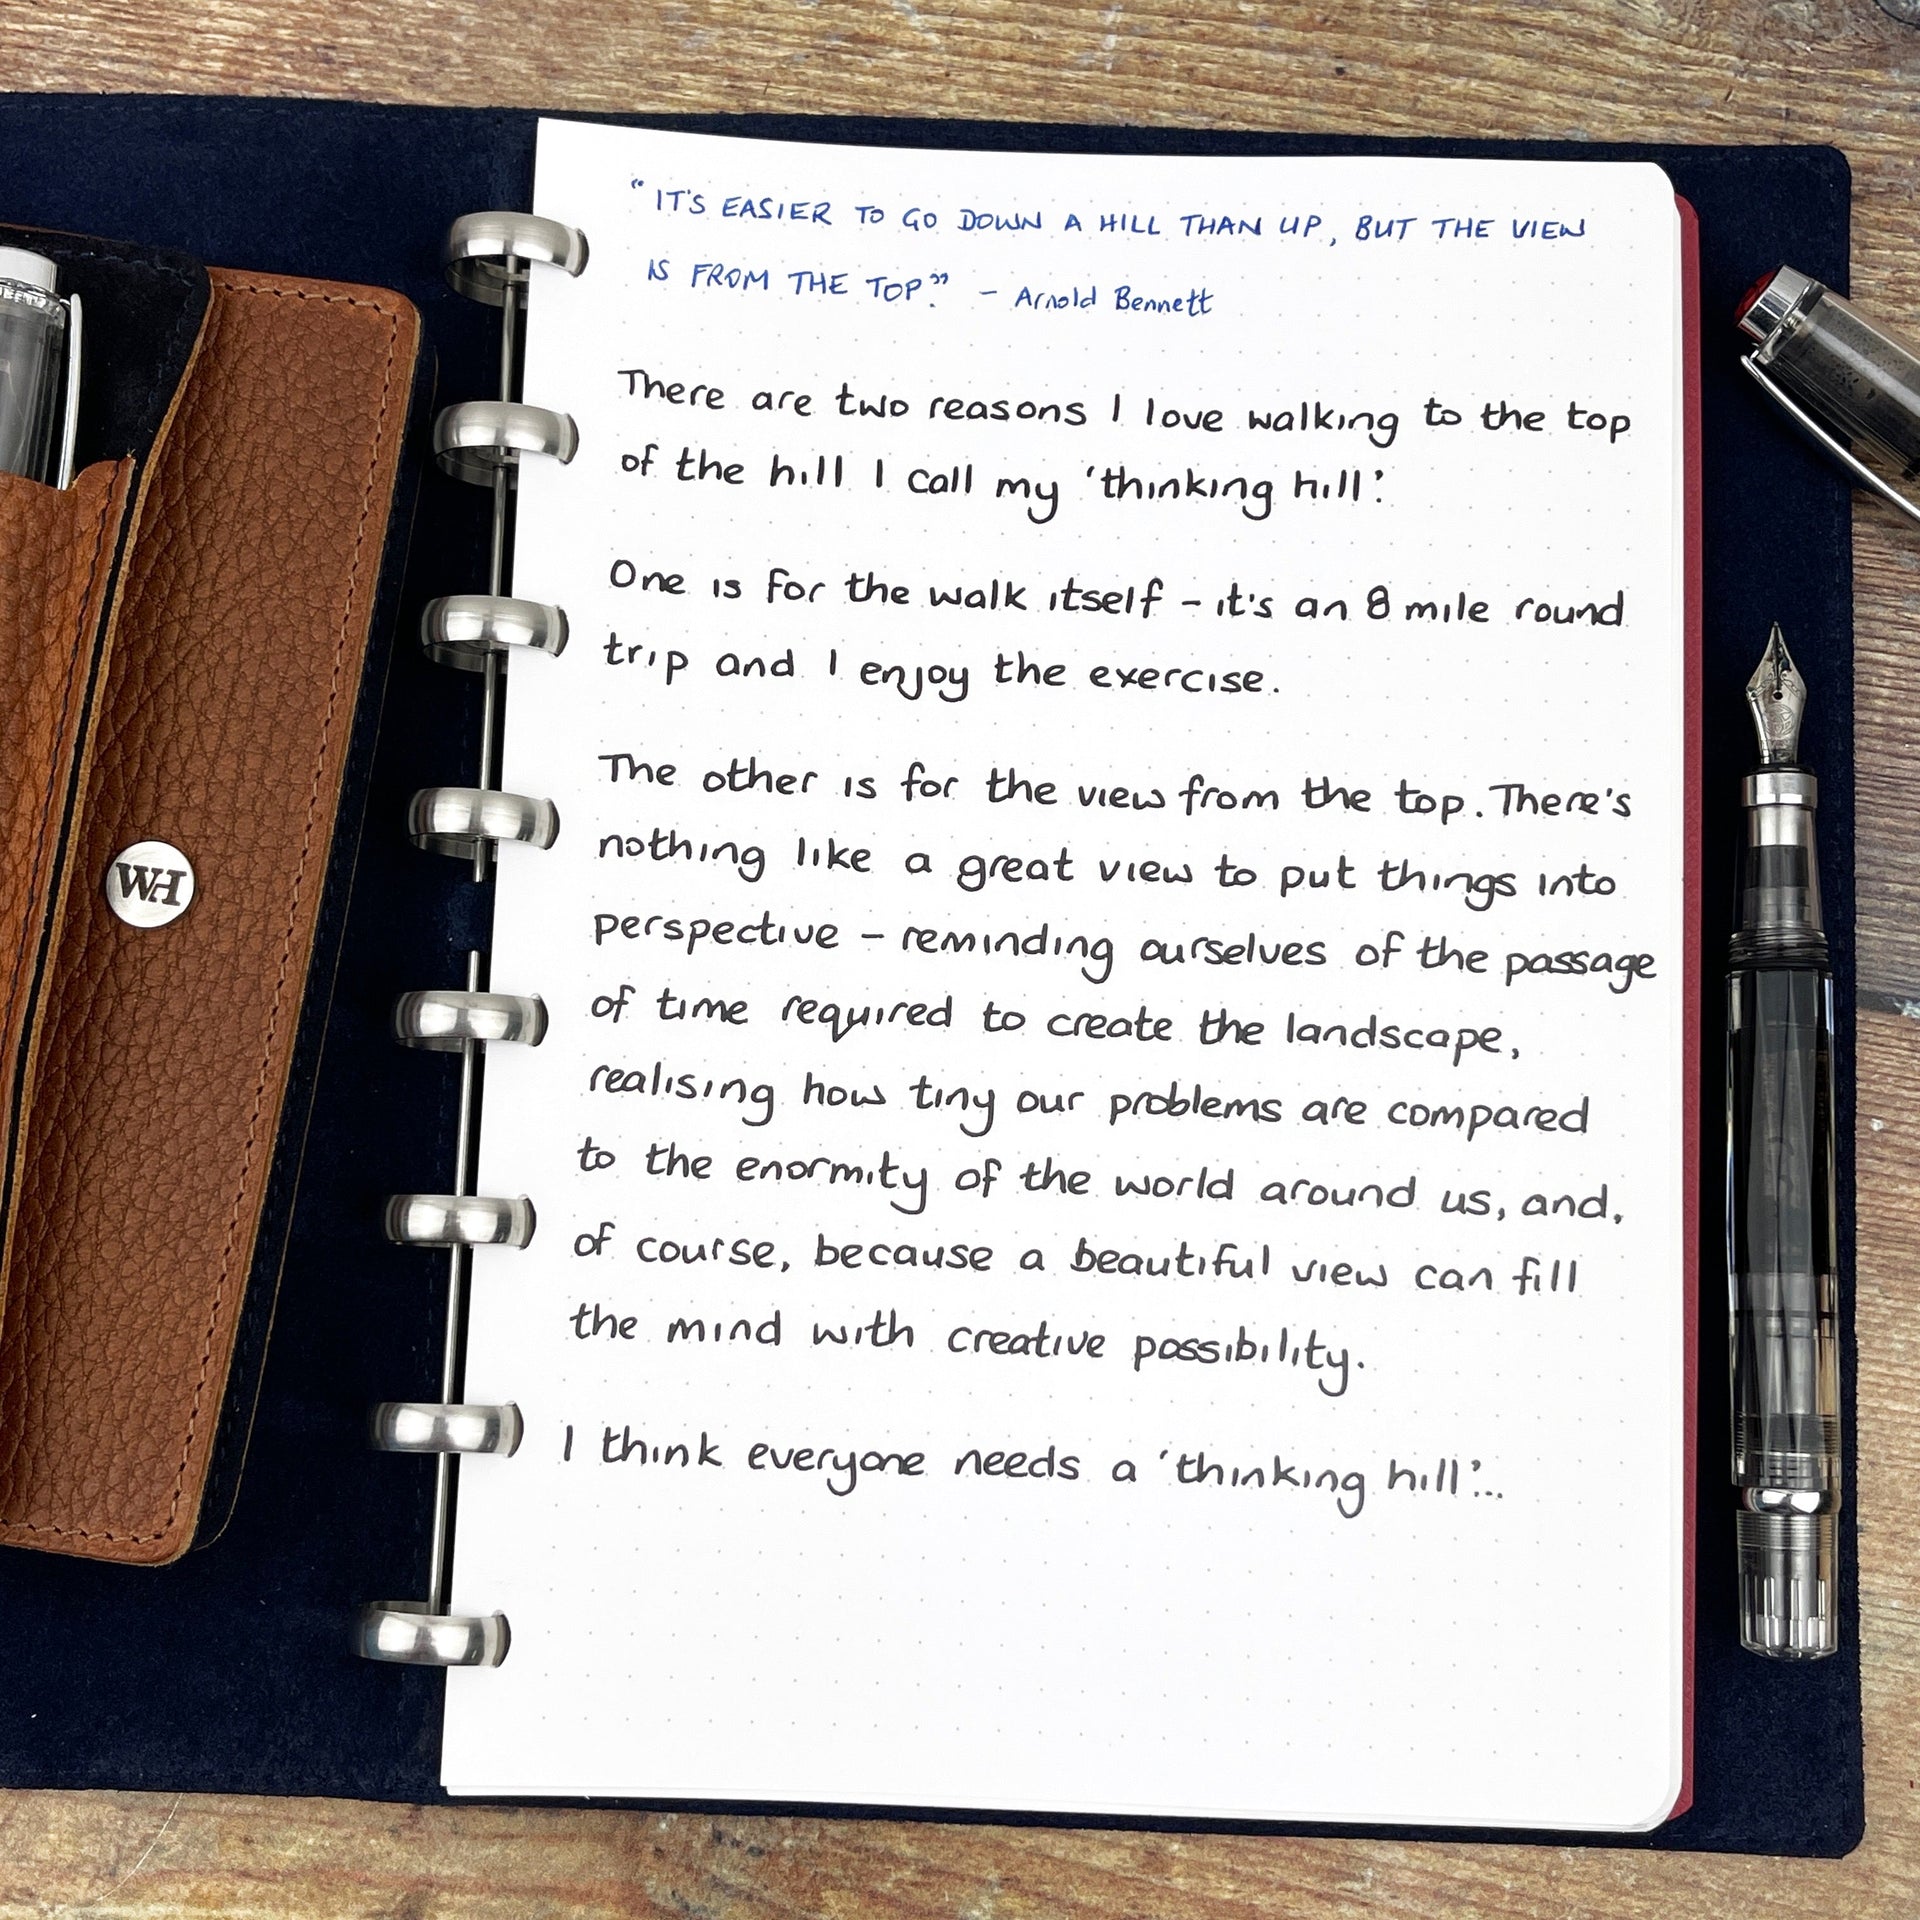 WH
"IT'S EASIER TO GO DOWN A HILL THAN UP, BUT THE VIEW
IS FROM THE TOP." - Arnold Bennett
There are two reasons I love walking to the top
of the hill I call my 'thinking hill'.
One is for the walk itself - it's an 8 mile round
trip and I enjoy the exercise.
The other is for the view from the top. There's
nothing like a great view to put things into
perspective - reminding ourselves of the passage
of time required to create the landscape,
realising how tiny our problems are compared
to the enormity of the world around us, and,
of course, because a beautiful view can fill
the mind with creative possibility.
I think everyone needs a 'thinking hill'...